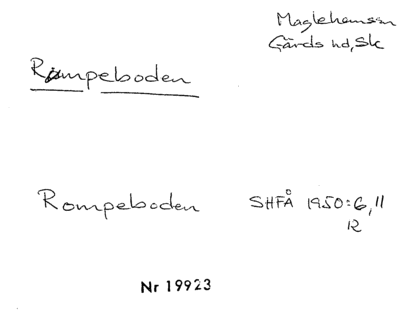 Maglehems sn
Gärds hd, Sk
Rompeboden
Rompeboden SHFÅ 1950:6, 11
12
Nr 19923